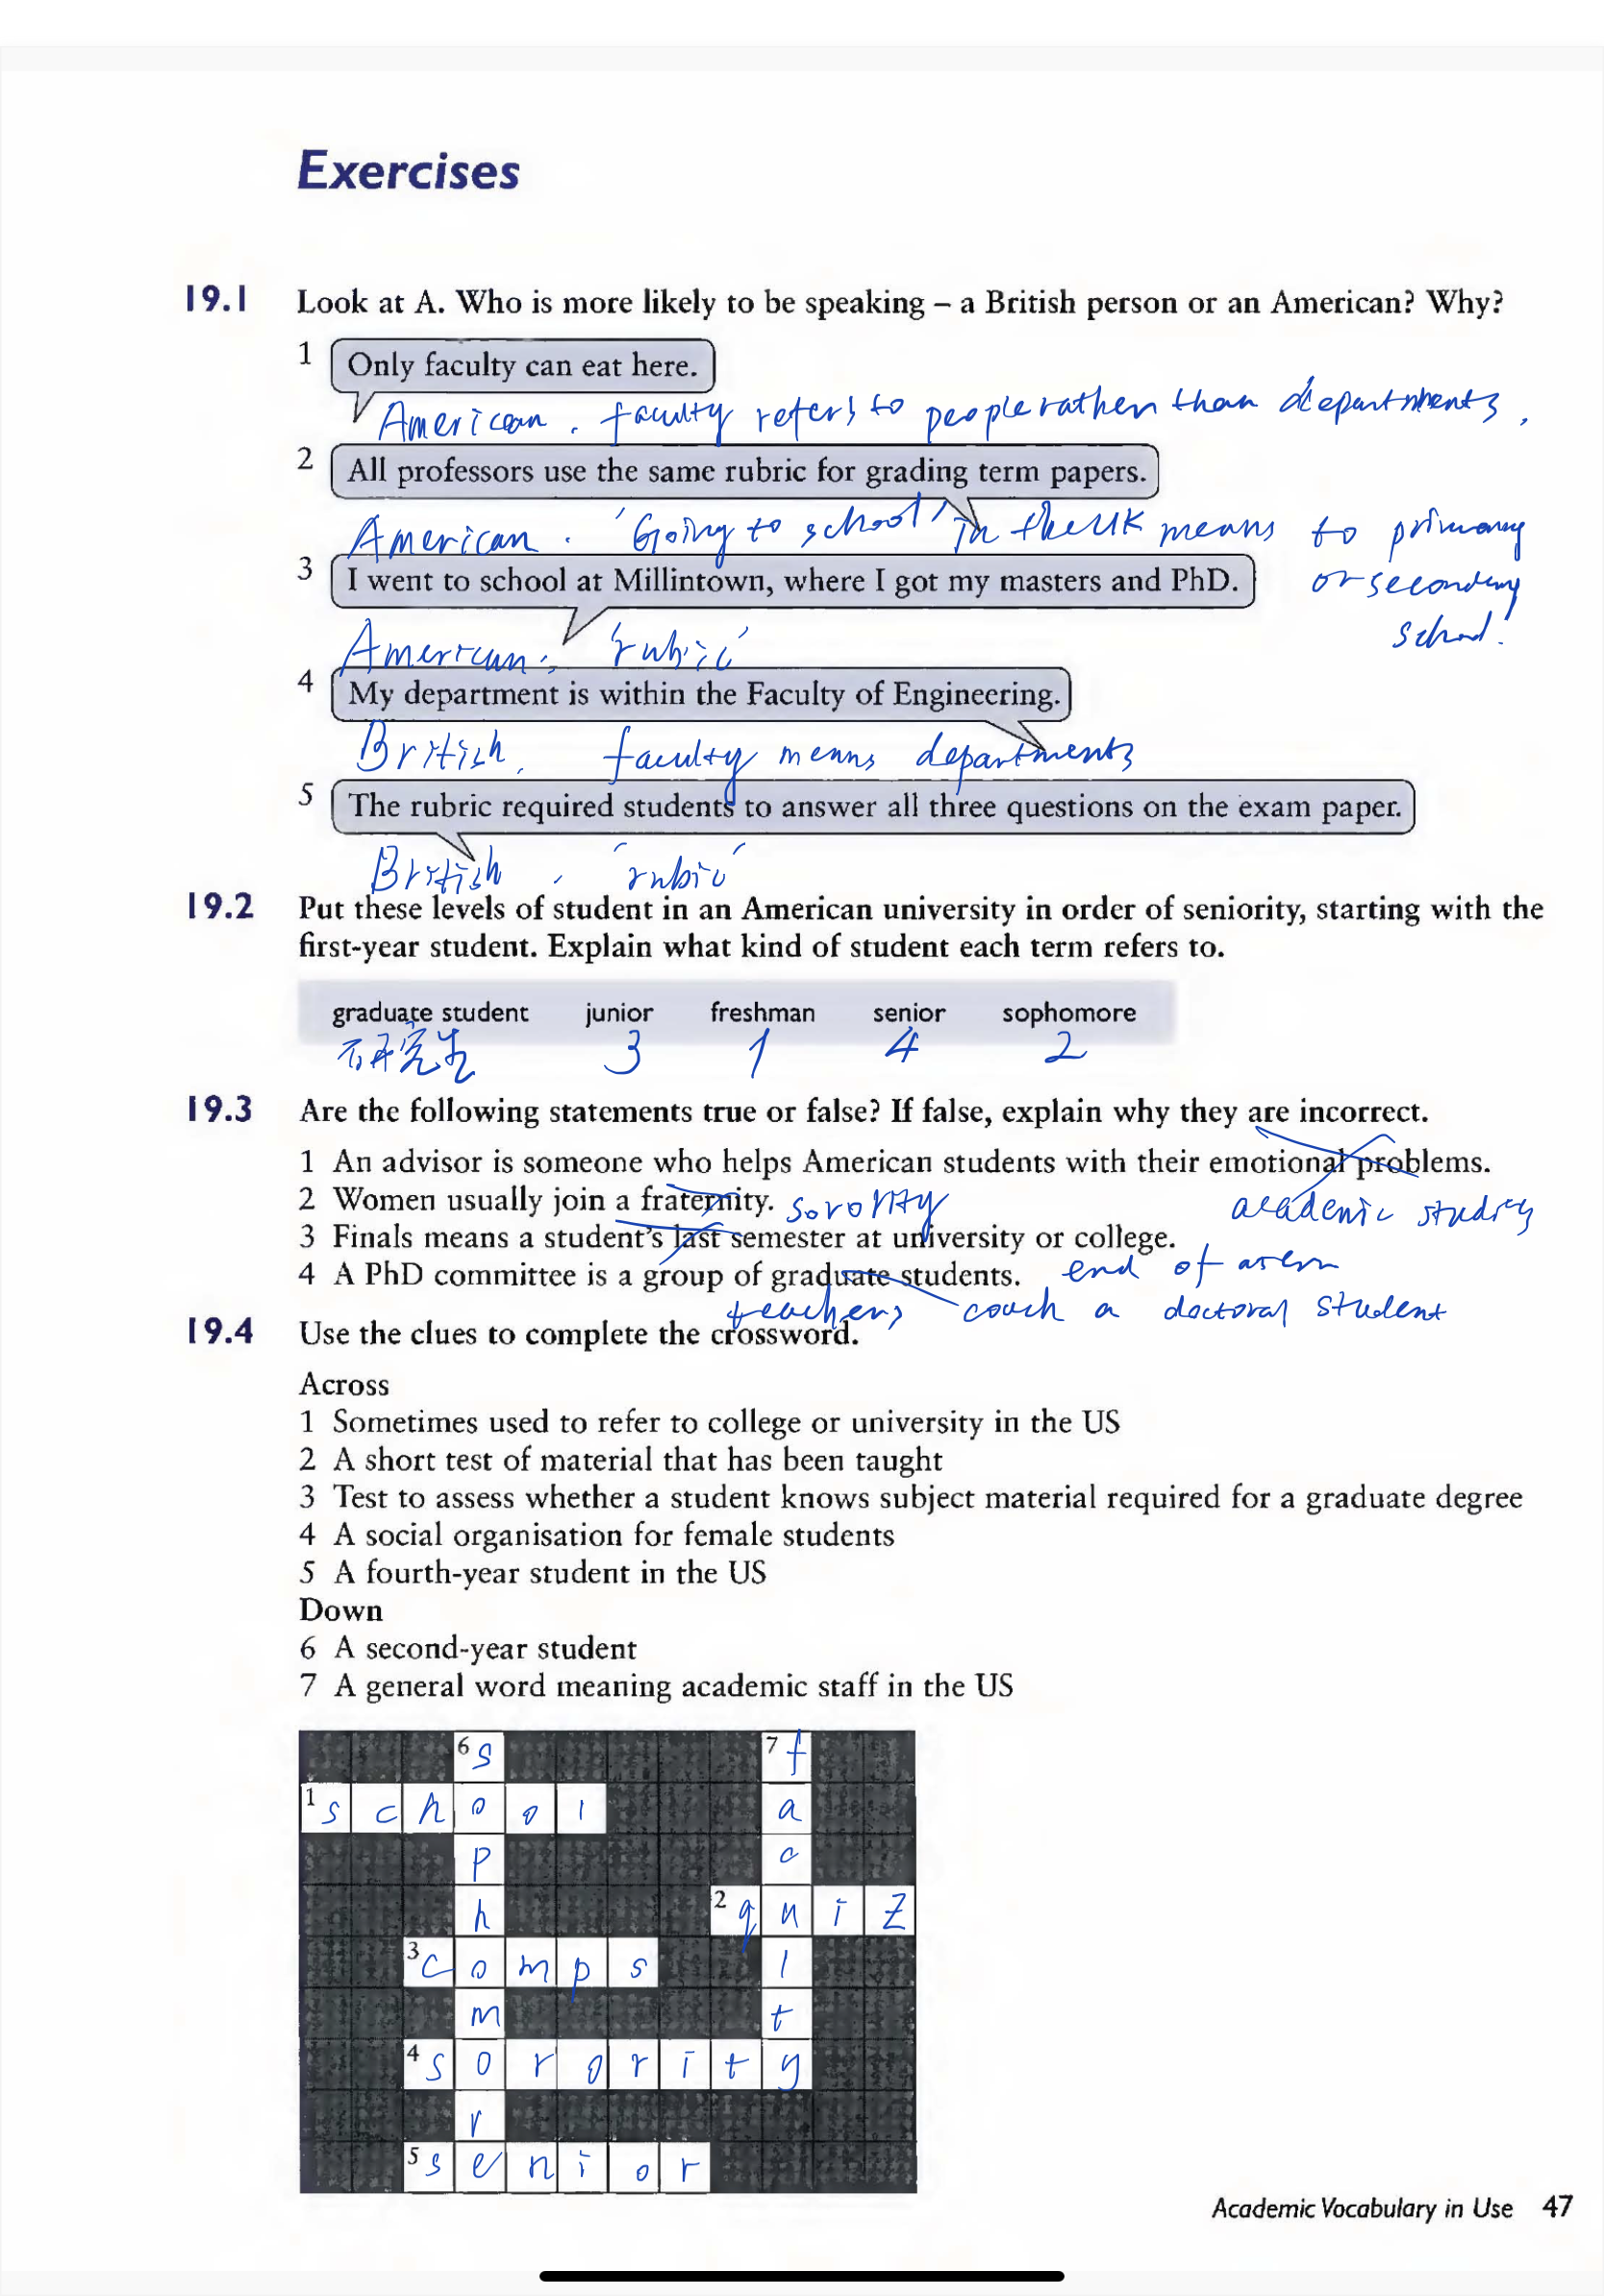 Exercises
19.1 Look at A. Who is more likely to be speaking – a British person or an American? Why?
1 Only faculty can eat here.
American. faculty refers to people rather than departments.
2 All professors use the same rubric for grading term papers.
American. 'Going to school' in the UK means to primary
3 I went to school at Millintown, where I got my masters and PhD.
or secondary
school.
American. 'rubric'
4 My department is within the Faculty of Engineering.
British, faculty means departments
5 The rubric required students to answer all three questions on the exam paper.
British, 'rubric'
19.2 Put these levels of student in an American university in order of seniority, starting with the
first-year student. Explain what kind of student each term refers to.
graduate student junior freshman senior sophomore
研究生 3 1 4 2
19.3 Are the following statements true or false? If false, explain why they are incorrect.
1 An advisor is someone who helps American students with their emotional problems.
2 Women usually join a fraternity. sorority academic studies
3 Finals means a student's last semester at university or college.
4 A PhD committee is a group of graduate students. end of
teachers coach a doctoral student
19.4 Use the clues to complete the crossword.
Across
1 Sometimes used to refer to college or university in the US
2 A short test of material that has been taught
3 Test to assess whether a student knows subject material required for a graduate degree
4 A social organisation for female students
5 A fourth-year student in the US
Down
6 A second-year student
7 A general word meaning academic staff in the US
6 s 7 f
1 s c h o o l a
p c
h 2 q u i z
3 c o m p s l
m t
4 s o r o r i t y
r
5 s e n i o r
Academic Vocabulary in Use 47